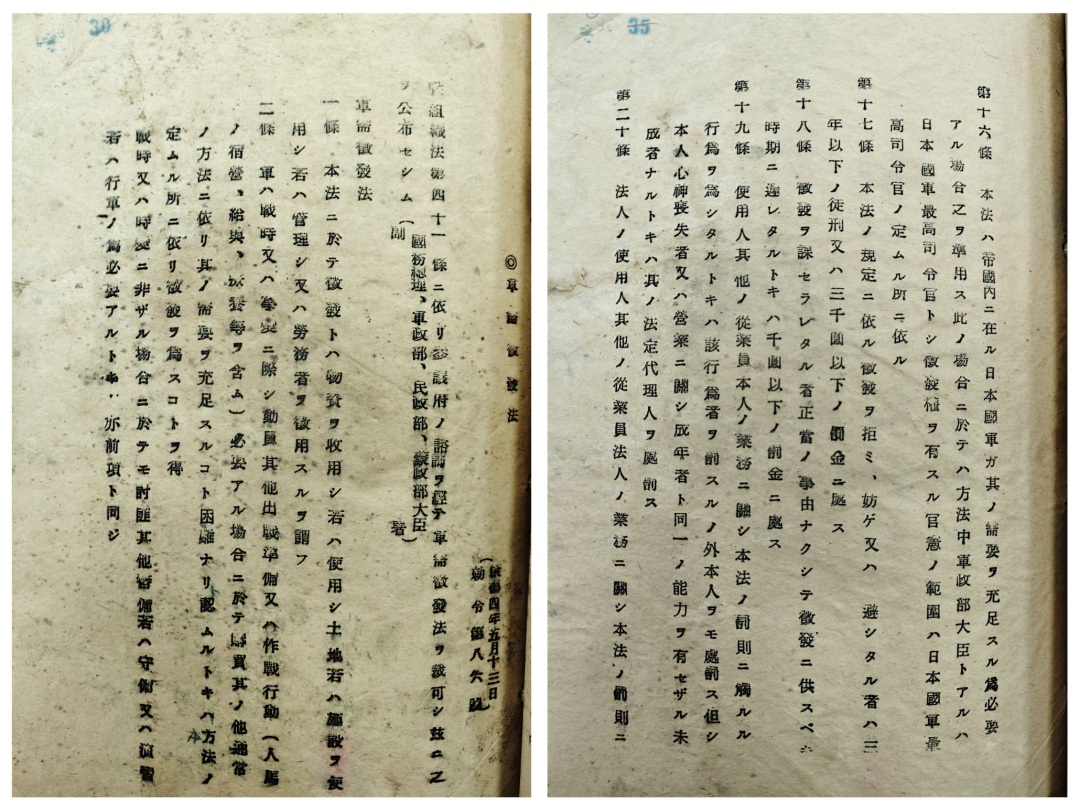 30
◎軍需徵發法
(康德四年五月十三日
勅令第八六號)
組織法第四十一條ニ依リ參議府ノ諮詢ヲ經テ軍需徵發法ヲ裁可シ玆ニ之
ヲ公布セシム
(國務總理、軍政部、民政部、蒙政部大臣
副署)
軍需徵發法
一條 本法ニ於テ徵發トハ物資ヲ收用シ若ハ使用シ土地若ハ施設ヲ使
用シ若ハ管理シ又ハ勞務者ヲ徵用スルヲ謂フ
二條 軍ハ戰時又ハ事變ニ際シ動員其他出戰準備又ハ作戰行動(人馬
ノ宿營、給與、療養等ヲ含ム)必要アル場合ニ於テ購買其ノ他通常
ノ方法ニ依リ其ノ需要ヲ充足スルコト困難ナリ認ムルトキハ方法ノ
定ムル所ニ依リ徵發ヲ爲スコトヲ得
戰時又ハ時變ニ非ザル場合ニ於テモ討匪其他警備若ハ守備又ハ演習
若ハ行軍ノ爲必要アルトキ亦前項ト同ジ
35
第十六條 本法ハ帝國內ニ在ル日本國軍ガ其ノ需要ヲ充足スル爲必要
アル場合之ヲ準用ス此ノ場合ニ於テハ方法中軍政部大臣トアルハ
日本國軍最高司令官トシ徵發權ヲ有スル官憲ノ範圍ハ日本國軍最
高司令官ノ定ムル所ニ依ル
第十七條 本法ノ規定ニ依ル徵發ヲ拒ミ、妨ゲ又ハ 避シタル者ハ三
年以下ノ徒刑又ハ三千圓以下ノ罰金ニ處ス
第十八條 徵發ヲ課セラレタル者正當ノ事由ナクシテ徵發ニ供スベキ
時期ニ遲レタルトキハ千圓以下ノ罰金ニ處ス
第十九條 使用人其他ノ從業員本人ノ業務ニ關シ本法ノ罰則ニ觸ルル
行爲ヲ爲シタルトキハ該行爲者ヲ罰スルノ外本人ヲモ處罰ス但シ
本人心神喪失者又ハ營業ニ關シ成年者ト同一ノ能力ヲ有セザル未
成者ナルトキハ其ノ法定代理人ヲ處罰ス
第二十條 法人ノ使用人其他ノ從業員法人ノ業務ニ關シ本法ノ罰則ニ